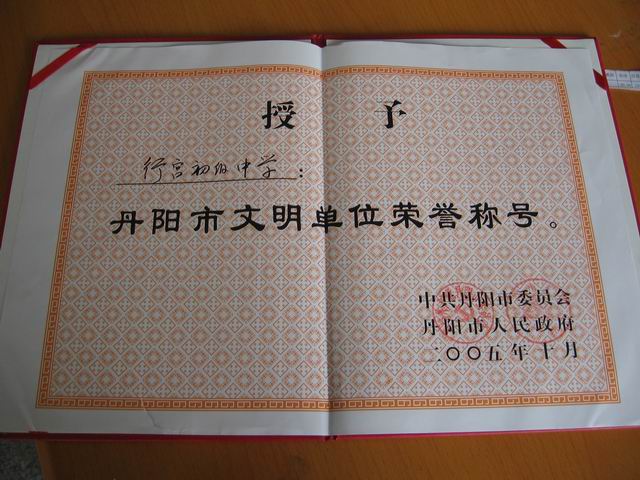 授 予
行宫初级中学：
丹阳市文明单位荣誉称号。
中共丹阳市委员会
丹阳市人民政府
二〇〇五年十月